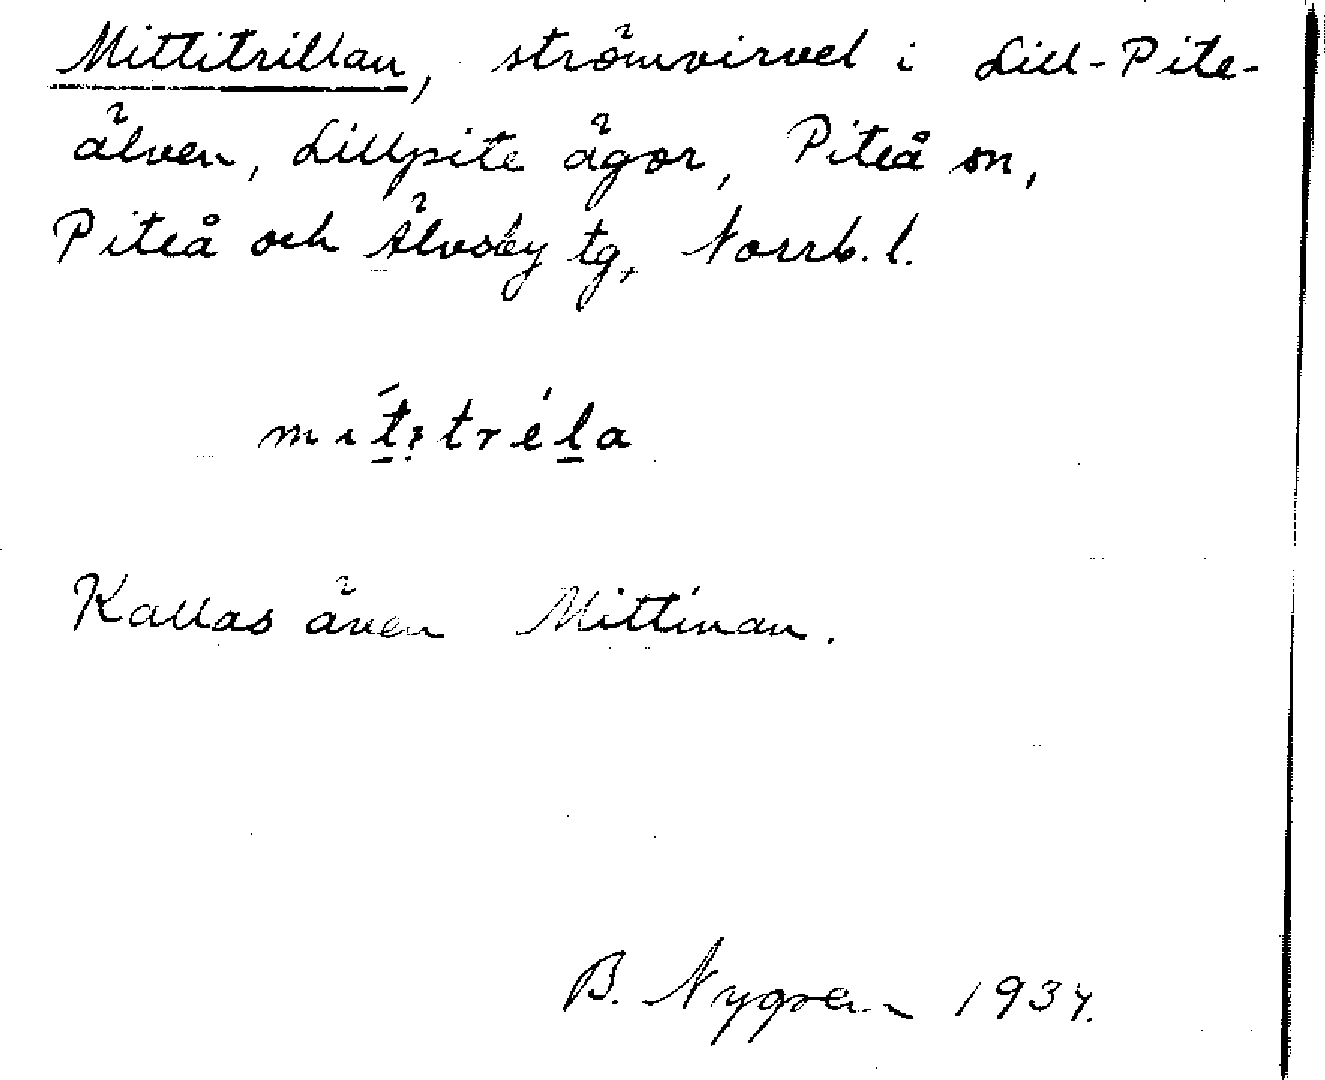 Mittitrillan, strömvirvel i Lill-Pite-
älven, Lillpite ägor, Piteå sn,
Piteå och Älvsby tg, Norrb. l.
Kallas även Mittinan.
B. Nygren 1934.